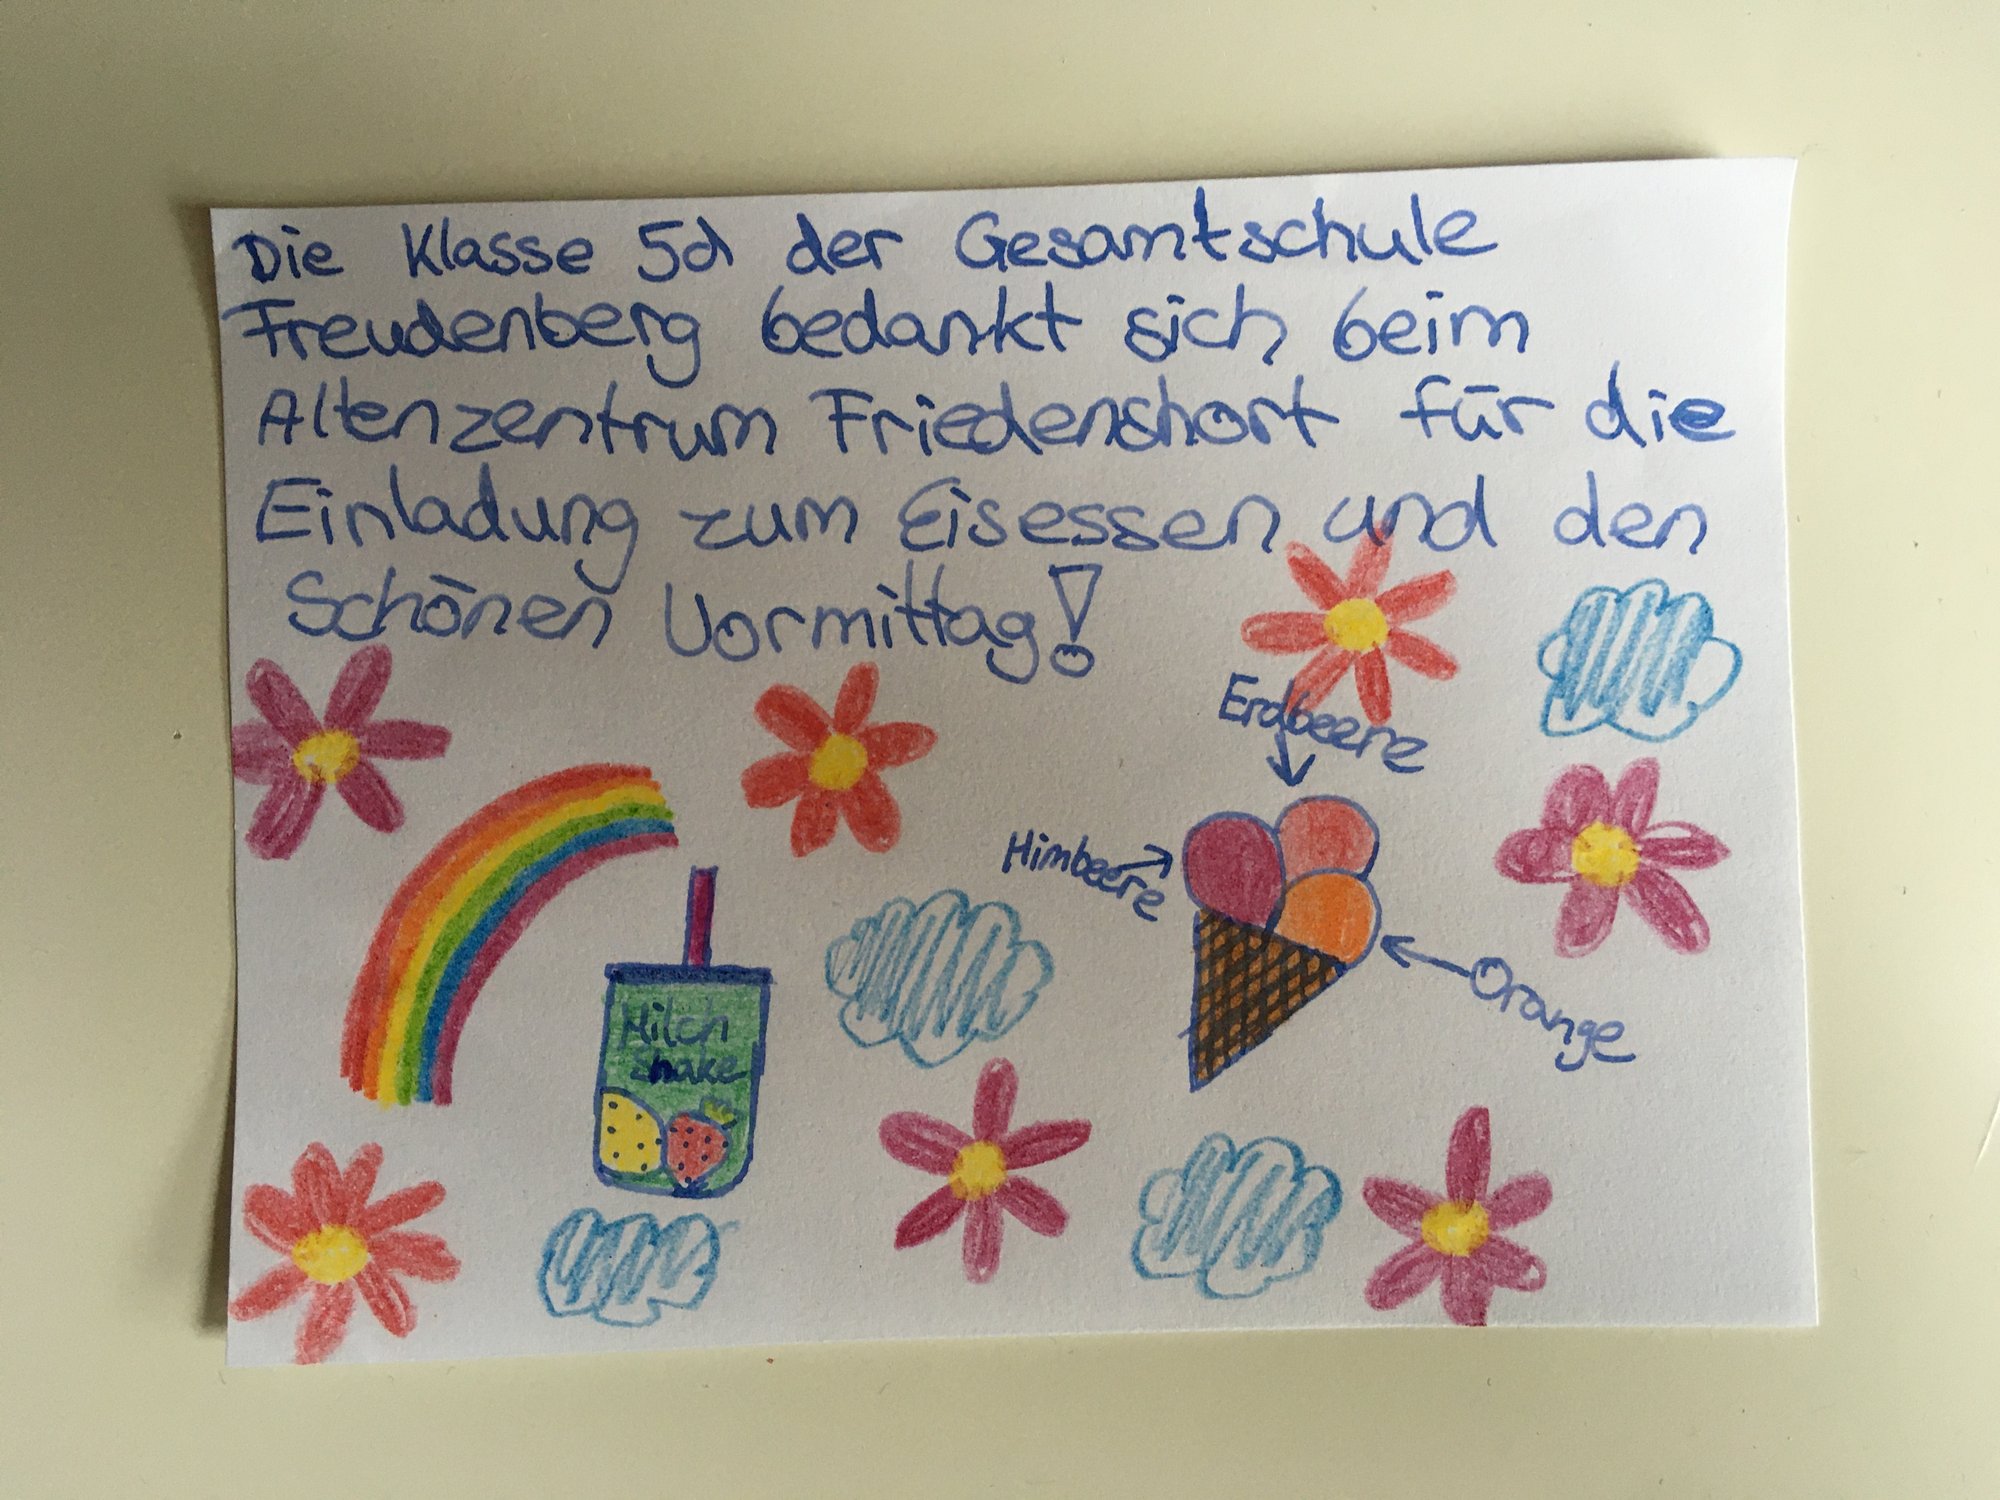 Die Klasse 5d der Gesamtschule
Freudenberg bedankt sich beim
Altenzentrum Friedenshort für die
Einladung zum Eisessen und den
Schönen Vormittag!
Erdbeere
Himbeere
Orange
Milch
Shake